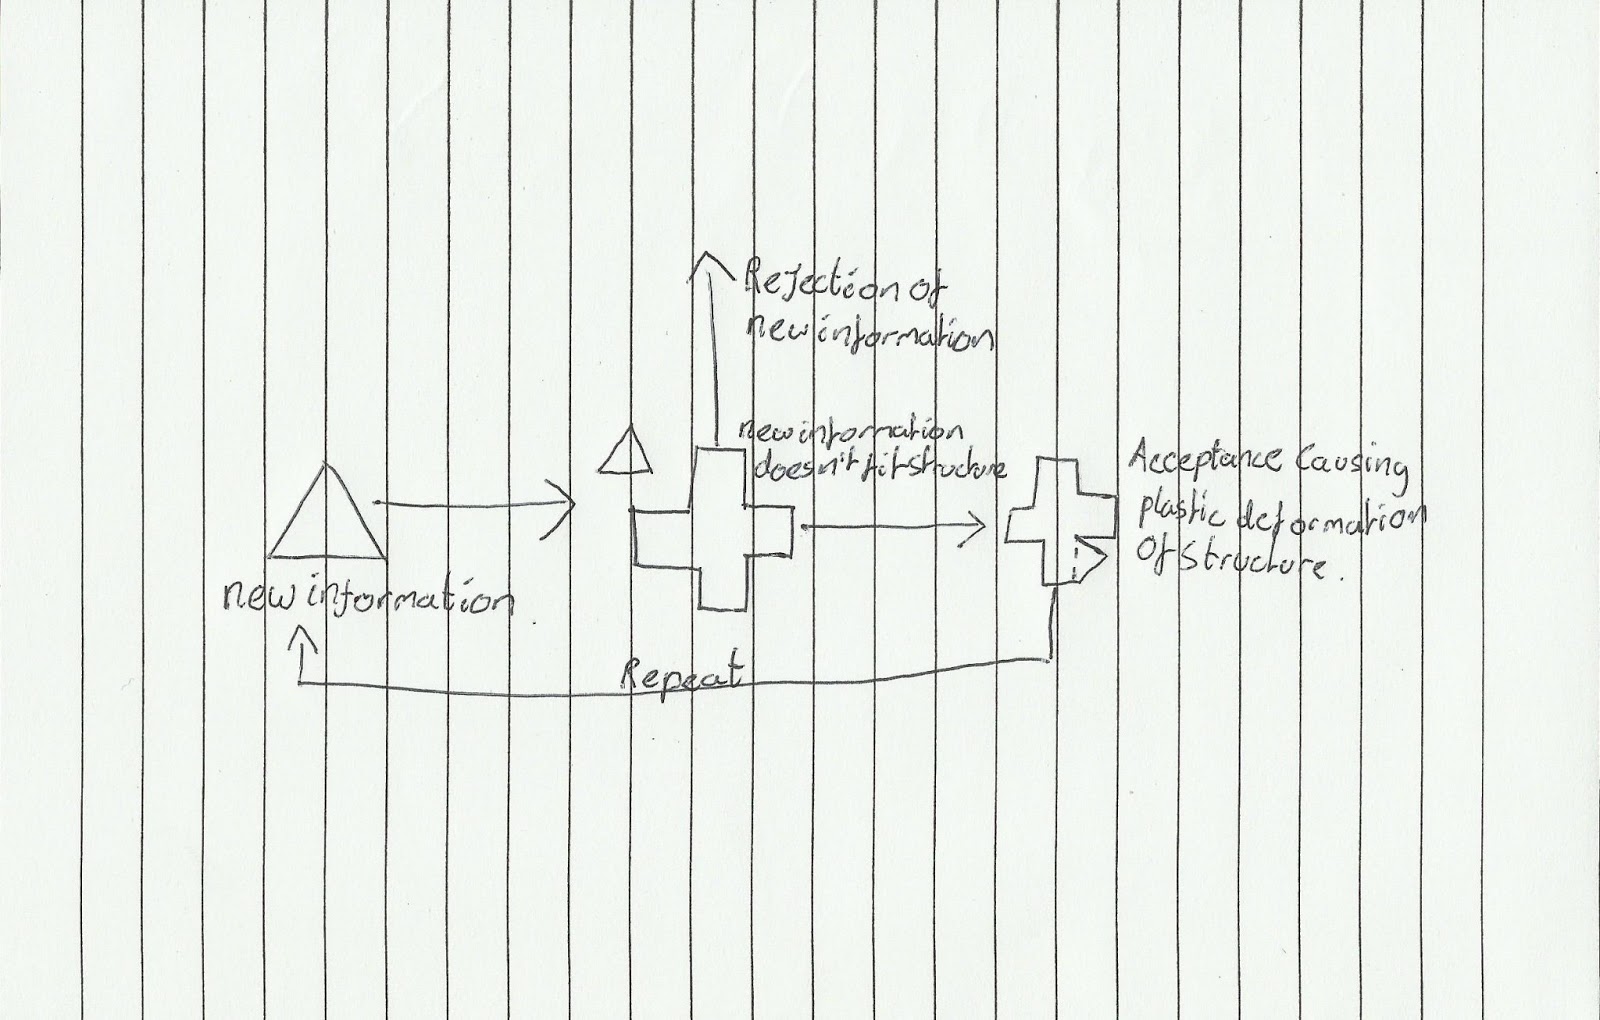 Rejection of
new information
new information
doesn't fit structure
Acceptance causing
plastic deformation
of structure.
new information
Repeat